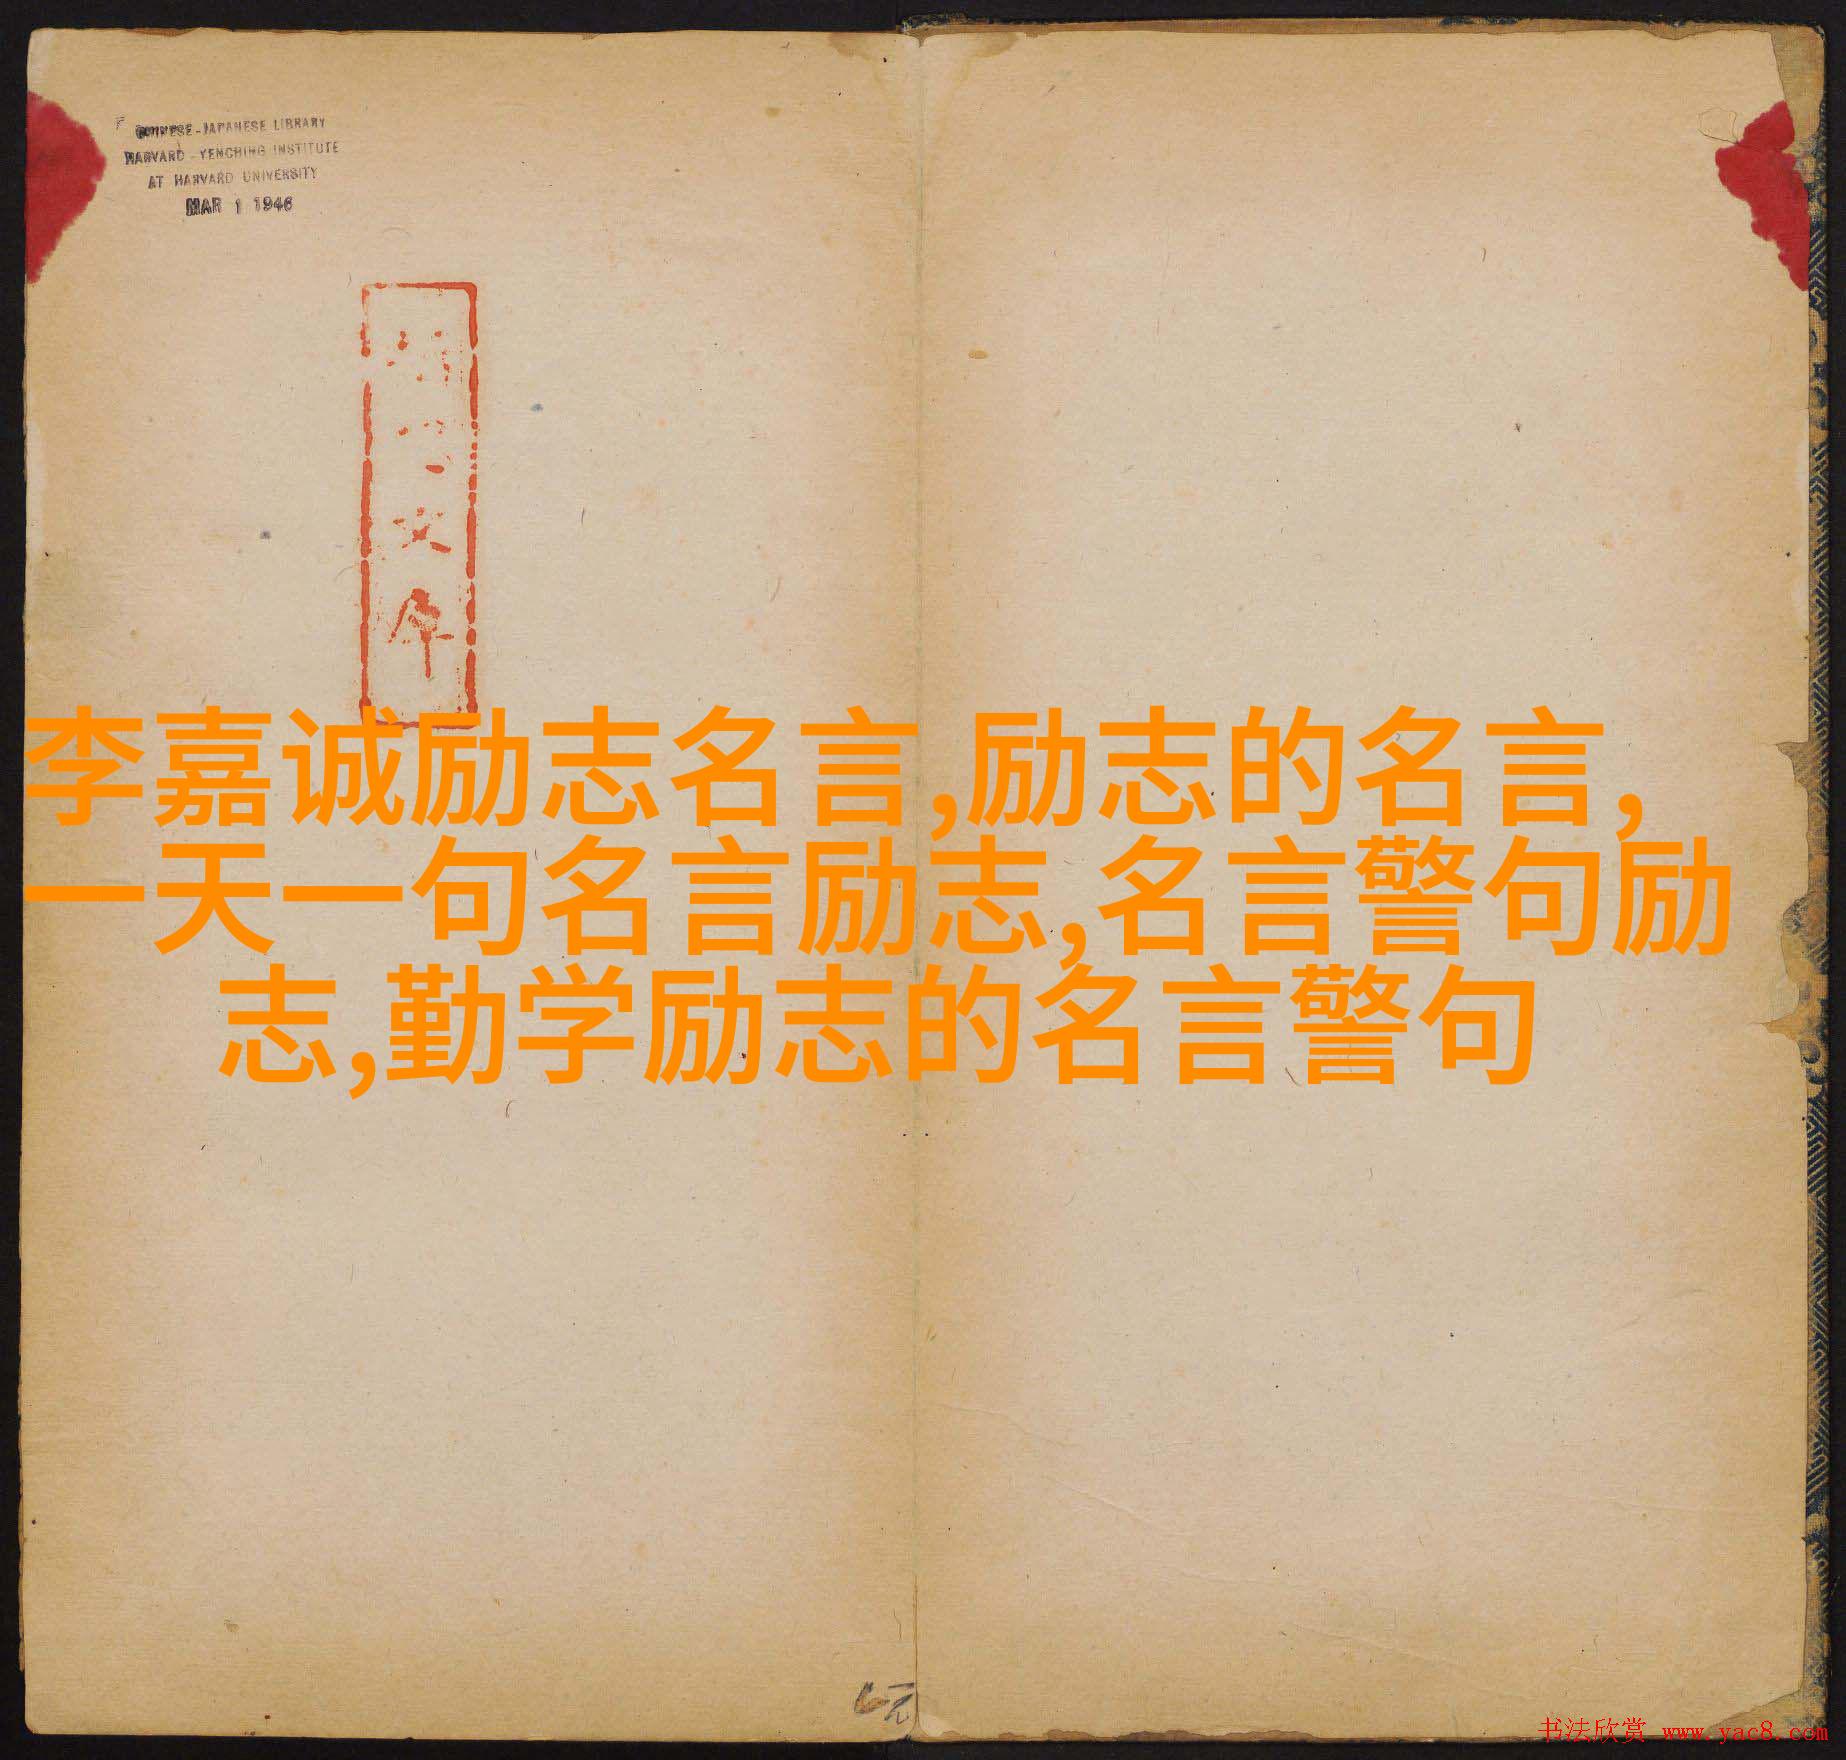 CHINESE-JAPANESE LIBRARY
HARVARD-YENCHING INSTITUTE
AT HARVARD UNIVERSITY
MAR 1 1946
文
库
李嘉诚励志名言,励志的名言,
一天一句名言励志,名言警句励
志,勤学励志的名言警句
6元
书法欣赏 www.yac8.com